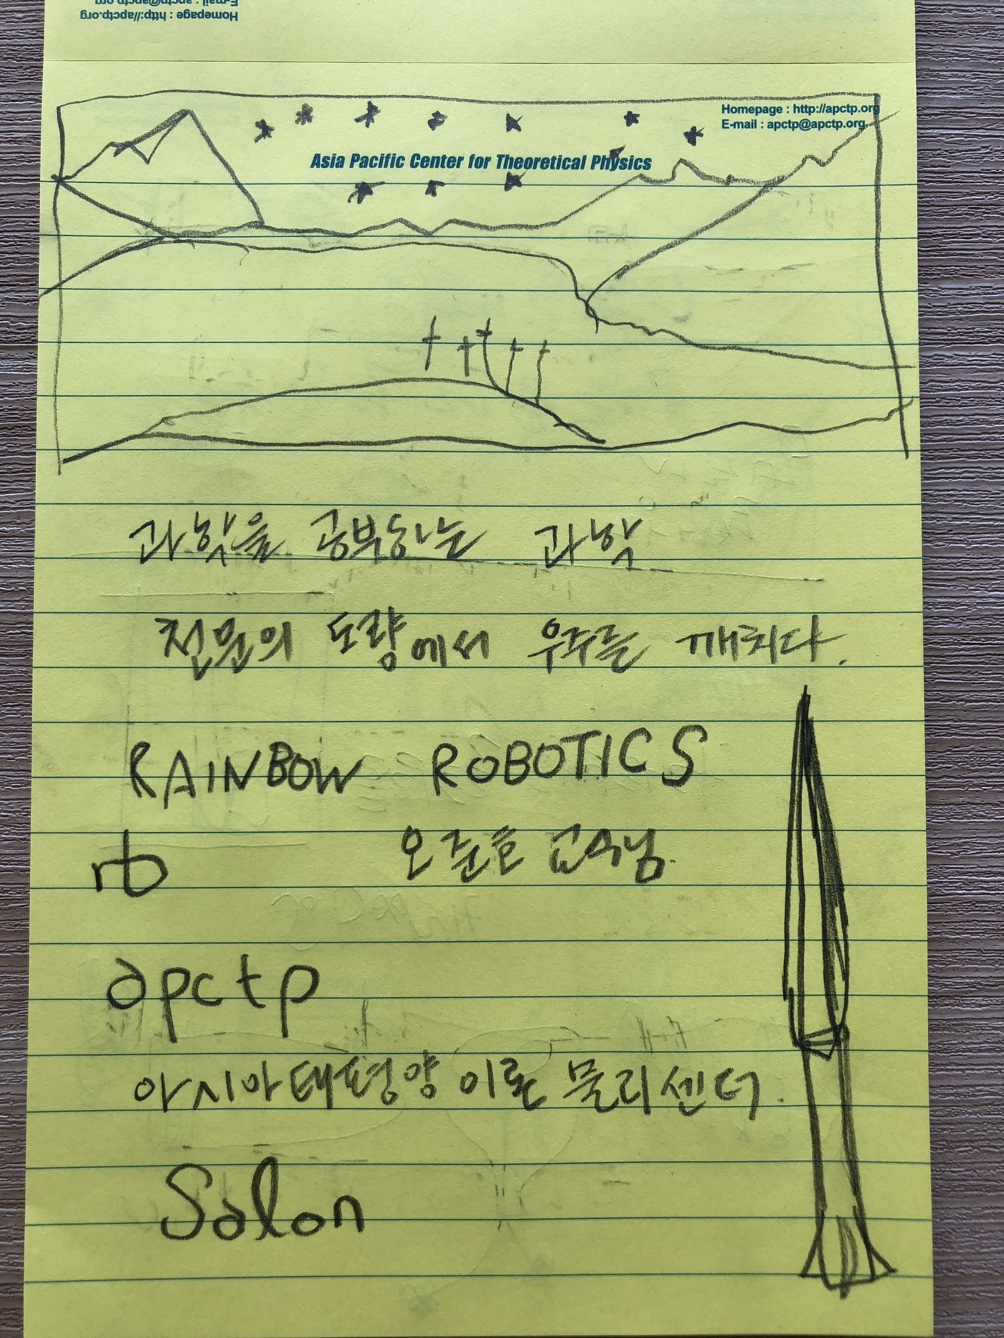 Homepage : http://apctp.org
E-mail : apctp@apctp.org
Homepage : http://apctp.org
E-mail : apctp@apctp.org
Asia Pacific Center for Theoretical Physics
과학을 공부하는 과학
전원의 도량에서 우주를 깨치다.
RAINBOW ROBOTICS
rb 오준호 교수님.
apctp
아시아태평양 이론 물리센터.
Salon